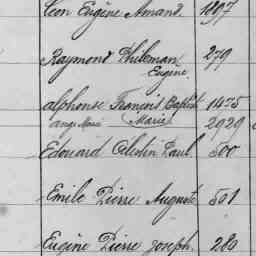 Léon Eugène Amand. 1897
Raymond Philéman 279
Eugène.
Alphonse François Baptist 1475
Ange Marie Marie 2929
Edouard Célestin Paul. 500
Emile Pierre Auguste 501
Eugène Pierre Joseph. 280